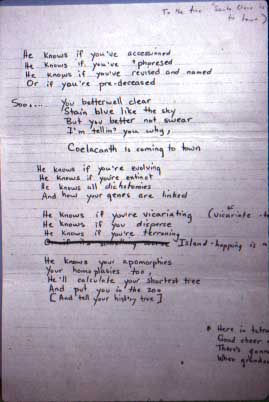 To the tune "Santa Claus is
to town)
He knows if you've accessioned
He knows if you've
He knows if you've revised and named
Or if you're pre-deceased
Soo.... You better well clear
Stain blue like the sky
But you better not swear
I'm tellin' you why,
Coelacanth is coming to town
He knows if you're evolving
He knows if you're extinct
He knows all dichotomies
And how your genes are linked
He knows if you're vicariating (vicariate
He knows if you disperse
He knows if you're
Island-hopping is
He knows your apomorphies
Your homoplasies too,
He'll calculate your shortest tree
And put you in the zoo
[And tell your hist'ry tree]
* Here in
Good cheer
There's gonna
When